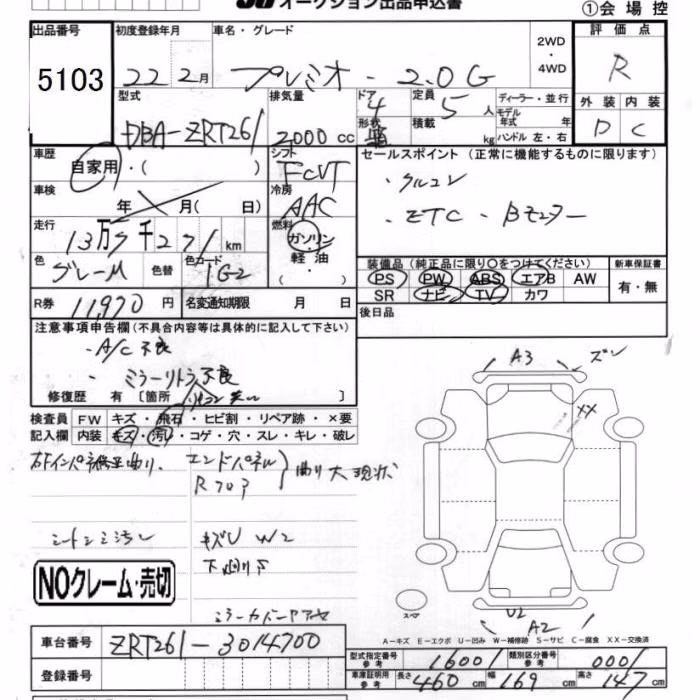 オークション出品申込書
①会場控
出品番号 初度登録年月 車名・グレード 2WD・4WD 評価点
5103 22 2月 プレミオ - 2.0G R
型式 排気量 ドア 定員 ディーラー・並行 外装 内装
DBA-ZRT261 2000cc 4 5人 モデル年式 年 D C
形状 積載 kg ハンドル 左・右
車歴 自家用・( ) シフト FCVT セールスポイント (正常に機能するものに限ります)
車検 年 月( 日) 冷房 AAC
・ETC・Bモニター
走行 13万7千271km 燃料 ガソリン 軽油・( )
色 グレーM 色替 色コード 1G2
装備品(純正品に限り○をつけてください) 新車保証書
PS PW ABS エアB AW 有・無
SR ナビ TV カワ
R券 11,970円 名変通知期限 月 日 後日品
注意事項申告欄(不具合内容等は具体的に記入して下さい)
・A/C不良
・ミラーリトラ不良
修復歴 有 [箇所 ]
検査員記入欄 FW キズ・飛石・ヒビ割・リペア跡・×要
内装 キズ・汚れ・コゲ・穴・スレ・キレ・破レ
エンドパネル 曲り大 現状
Rフロア
キズU W2
下廻りサ
NOクレーム・売切
A3
XX
U2
A2
スペア
A-キズ E-エクボ U-凹み W-補修跡 S-サビ C-腐食 XX-交換済
車台番号 ZRT261-3014700
型式指定番号 参考 16001 類別区分番号 参考 0001
登録番号
車庫証明用 参考 長さ 460cm 幅 169cm 高さ 147cm